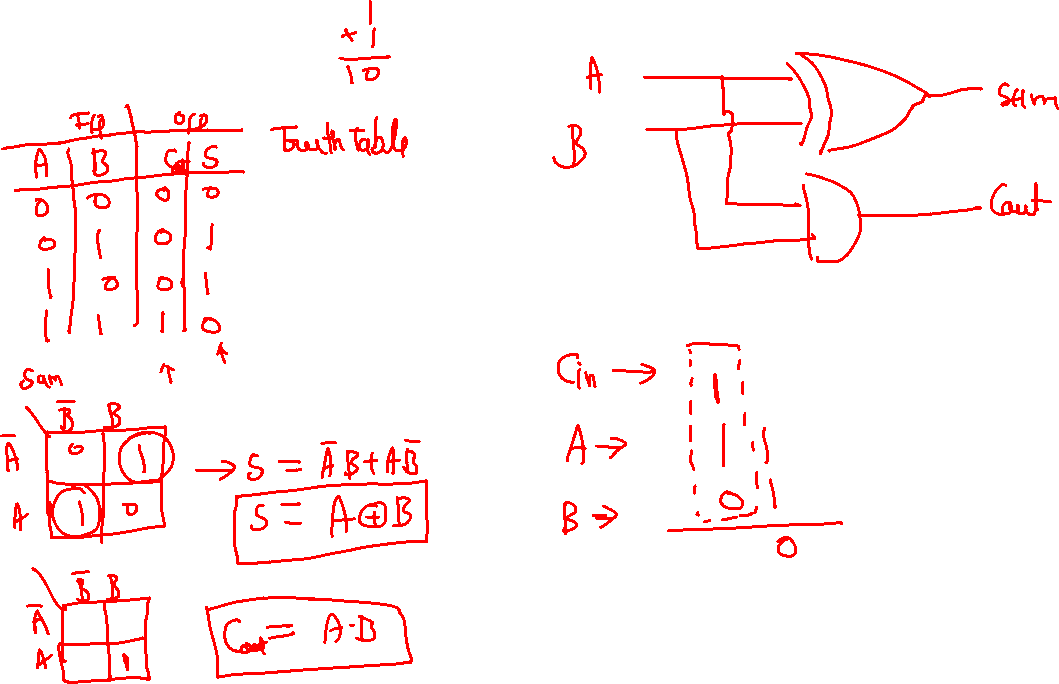 1
+ 1
10
I/p O/p
Truth table
A B Cout S
0 0 0 0
0 1 0 1
1 0 0 1
1 1 1 0
Sum
B̅ B
A̅ 0 1
A 1 0
→ S = A̅B + AB̅
S = A⊕B
B̅ B
A̅
A 1
Cout = A·B
A
B
Sum
Cout
Cin → 1
A → 1 1
B → 0 1
0